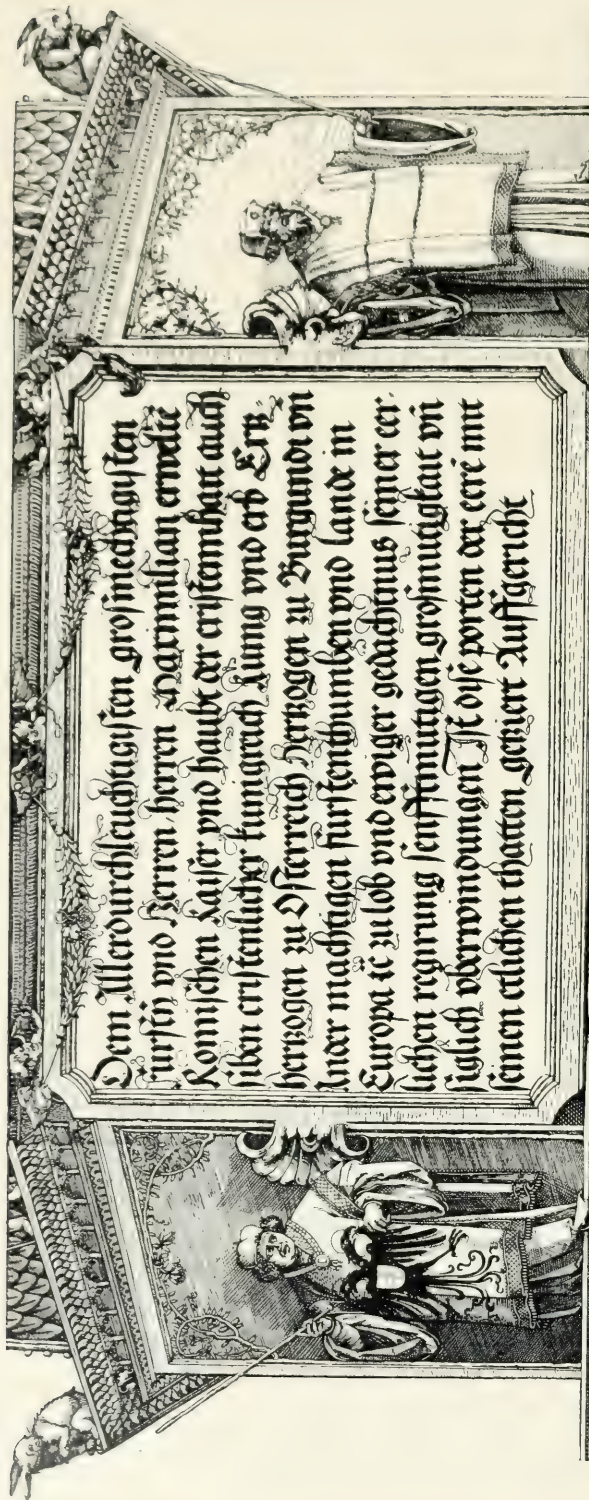 Dem Allerdurchleuchtigisten großmechtigisten
Fürsten vnd Herren herren Maximilian erwelte
Romischen Kaiser vnd haubt der cristennhait auch
siben cristenlicher kunigreich Kunig vnd erb Ertz-
hertzogen zu Osterreich Hertzogen zu Burgundi vñ
Ander mächtigen fürstenthumben vnd lande in
Europa ꝛc zu lob vnd ewiger gedachtnus seiner eer-
lichen regirung senfftmuttigen großmutigkait vñ
siglich vberwindungen Ist dise porten der eere mit
seinen etlichen thatten getziert Auffgericht